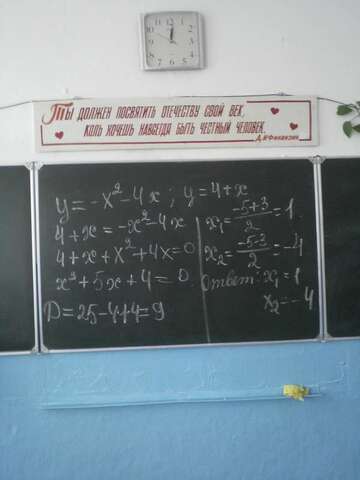 Ты должен посвятить Отечеству свой век,
коль хочешь навсегда быть честный человек.
Д.И.Фонвизин
y = -x² - 4x ; y = 4 + x
4 + x = -x² - 4x
4 + x + x² + 4x = 0
x² + 5x + 4 = 0
D = 25 - 4·4 = 9
x₁ = (-5+3)/2 = 1
x₂ = (-5-3)/2 = -4
Ответ: x₁ = 1
x₂ = -4